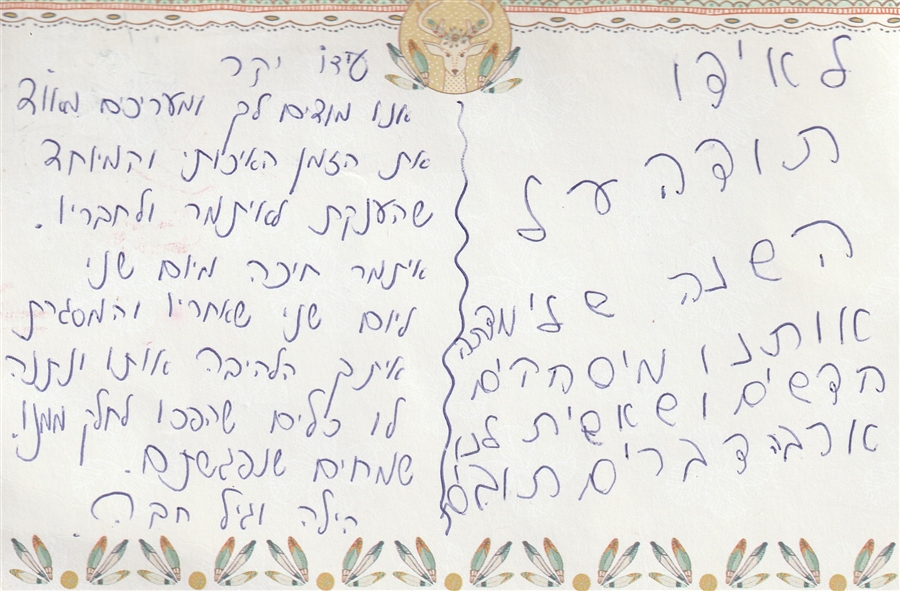 לאידו
תודה על
השנה שלימדתה
אותנו מיסחקים
חדשים ושאשית לנו
ארבה דברים תובים
עידו יקר
אנו מודים לך ומעריכים מאוד
את הזמן האיכותי והמיוחד
שהענקת לאיתמר ולחבריו.
איתמר חיכה מיום שני
ליום שני שאחריו והמסגרת
איתך הלהיבה אותו ונתנה
לו כלים שהפכו לחלק ממנו.
שמחים שנפגשתם.
הילה וגיל